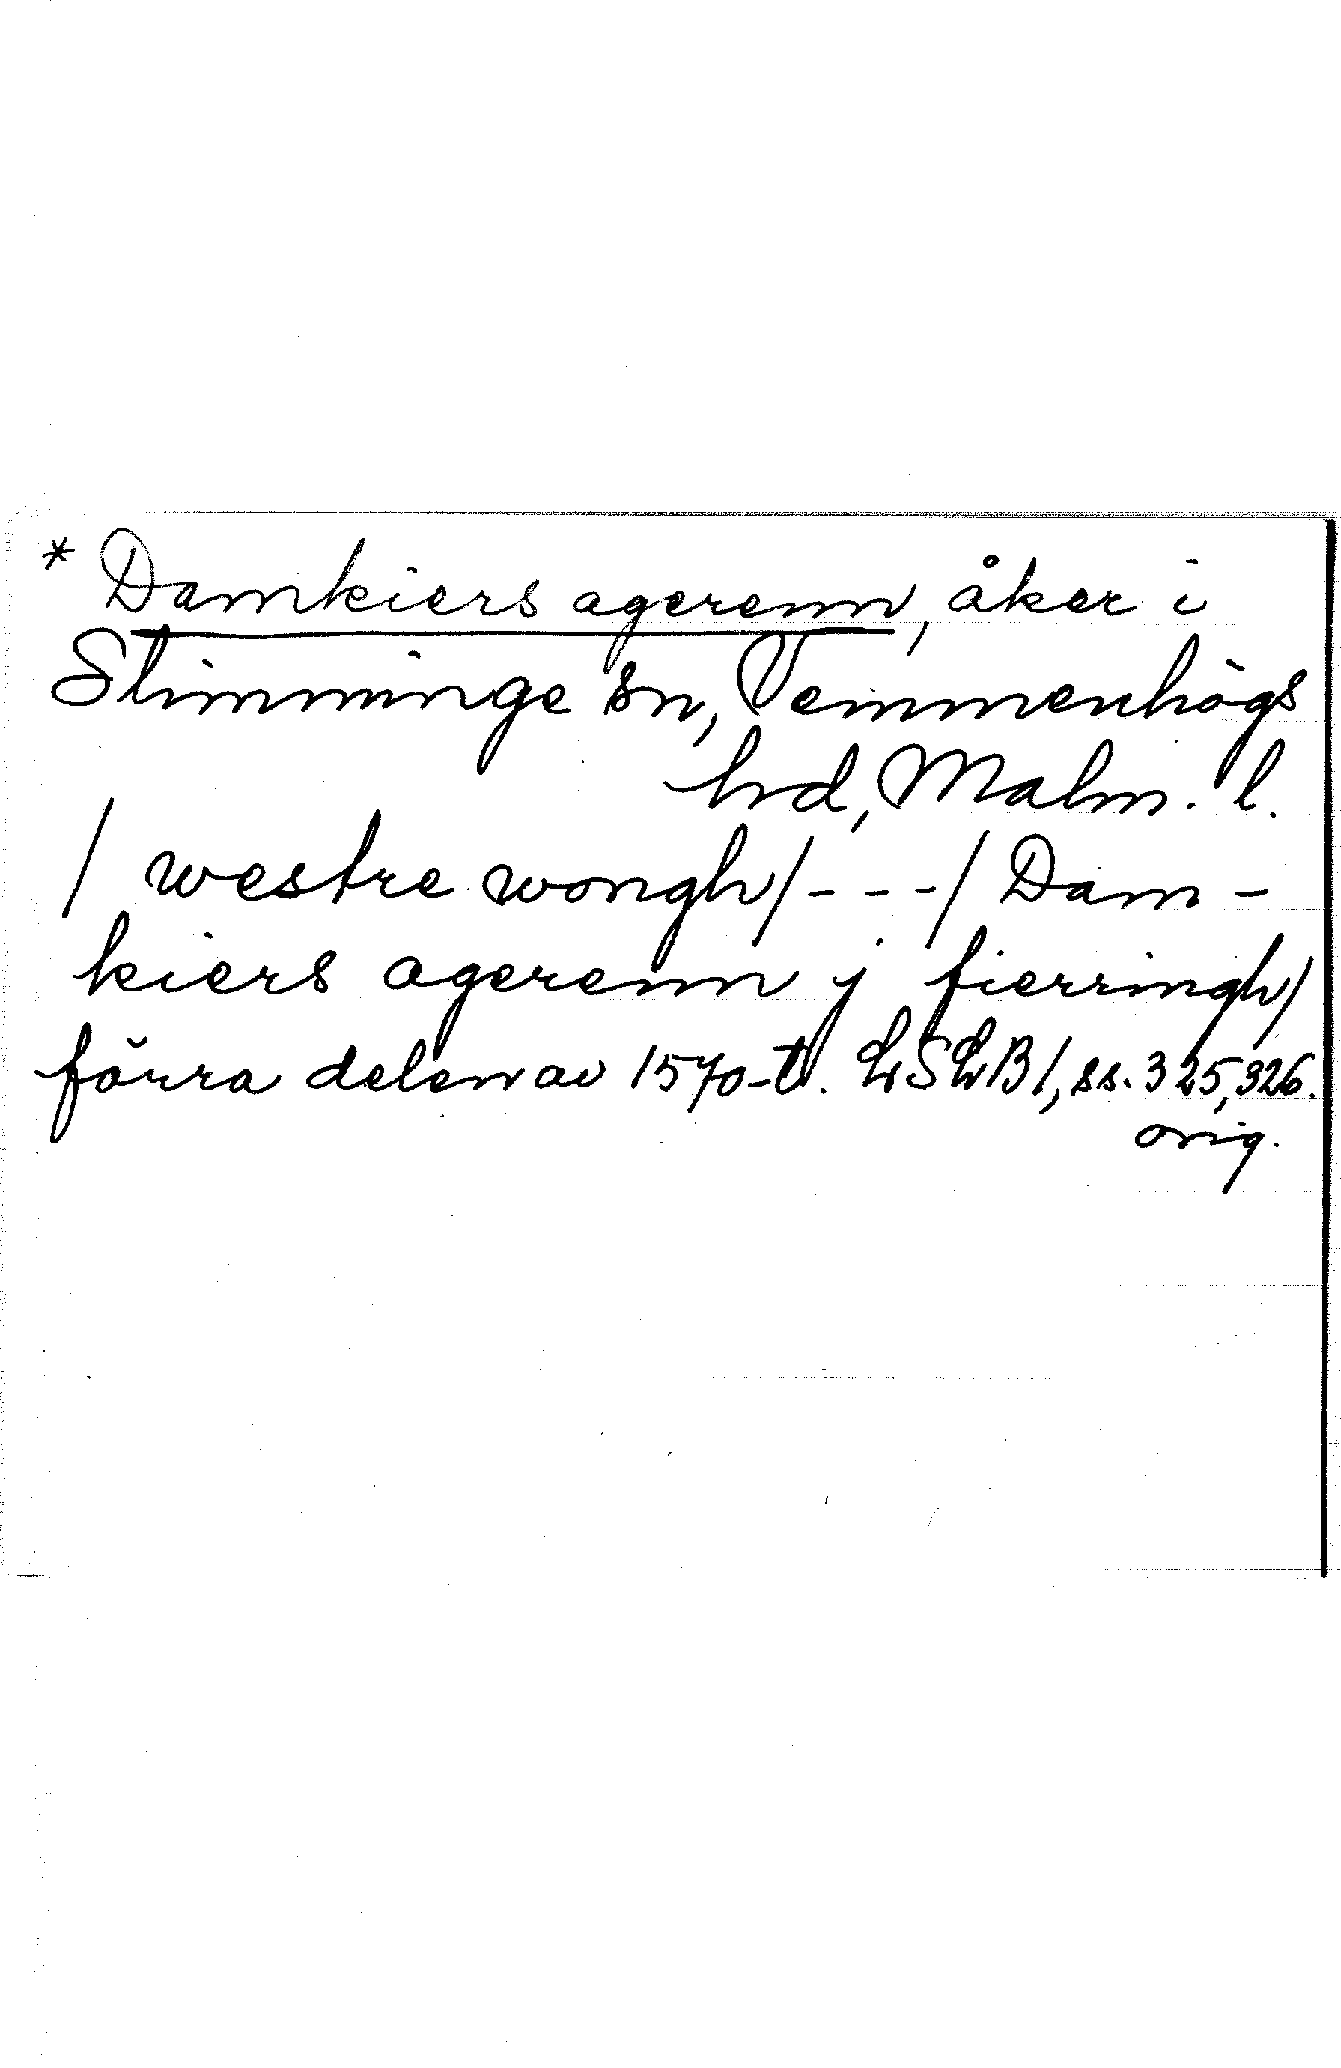 * Damkiers agerenn, åker i
Slimminge sn, Vemmenhögs
hrd, Malm. l.
/ westre wongh / - - - / Dam-
kiers agerenn j fierringh /
förra delen av 1570-t. LSLB 1, ss. 325, 326.
orig.